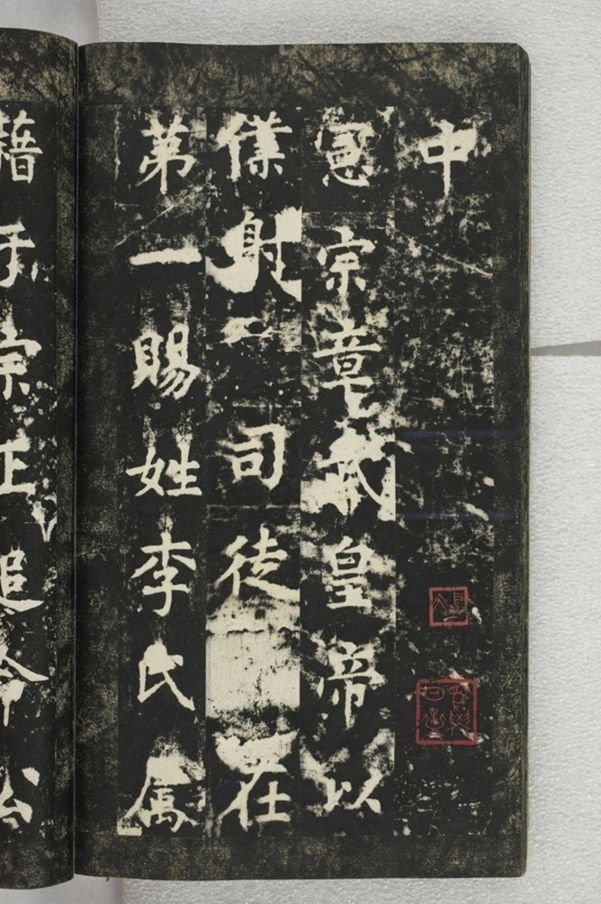 中
憲宗章武皇帝以
僕射司徒在
第一賜姓李氏属
藉于宗正追命公